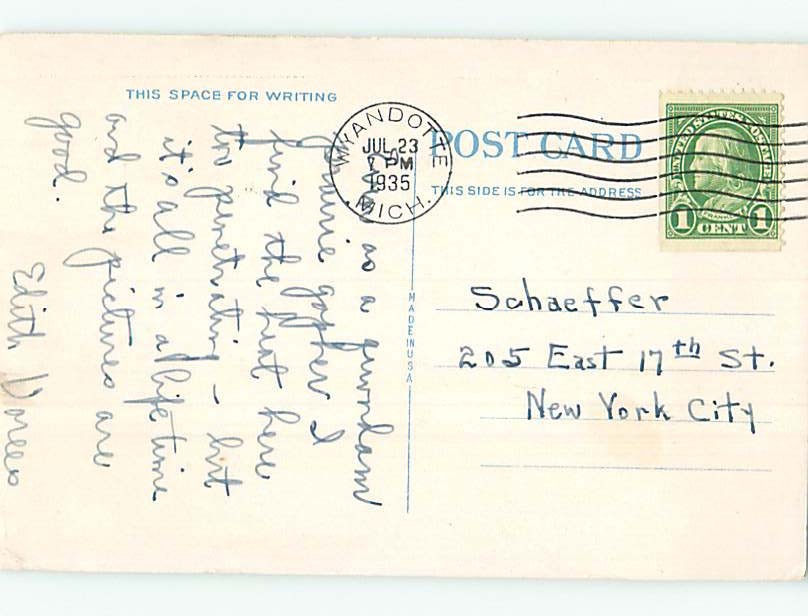 THIS SPACE FOR WRITING
as a
Grannie gopher I
find the heat here
too penetrating - but
it's all in a lifetime
and the pictures are
good.
Edith
WYANDOTTE
JUL 23
7 PM
1935
MICH.
POST CARD
THIS SIDE IS FOR THE ADDRESS
UNITED STATES POSTAGE
FRANKLIN
1 CENT 1
MADE IN USA
Schaeffer
205 East 17th St.
New York City